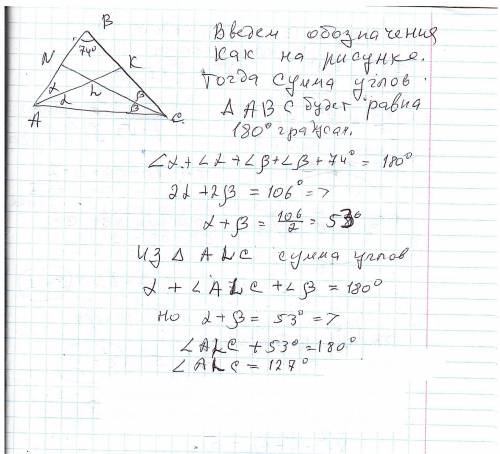 B
74°
N
K
α
α
L
β
β
A
C
Введем обозначения
как на рисунке.
Тогда сумма углов
Δ ABC будет равна
180° градсан.
∠α + ∠α + ∠β + ∠β + 74° = 180°
2α + 2β = 106° =>
α + β = 106/2 = 53°
Из Δ ALC сумма углов
α + ∠ALC + ∠β = 180°
но α + β = 53° =>
∠ALC + 53° = 180°
∠ALC = 127°